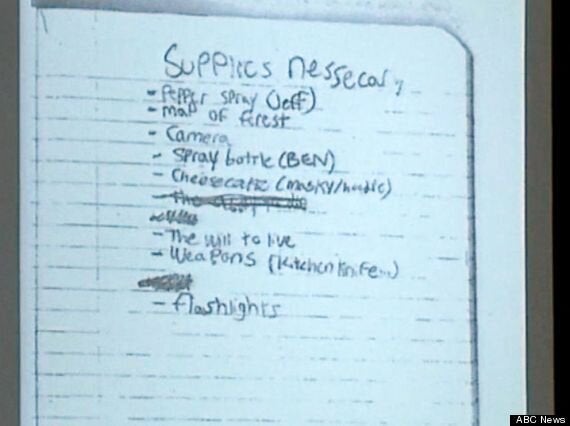 Supplies nessecary
- Pepper spray (Jeff)
- map of forest
- Camera
- Spray bottle (BEN)
- Cheesecake (masky/hoodie)
- The
- The will to live
- Weapons (Kitchen knife...)
- flashlights
ABC News